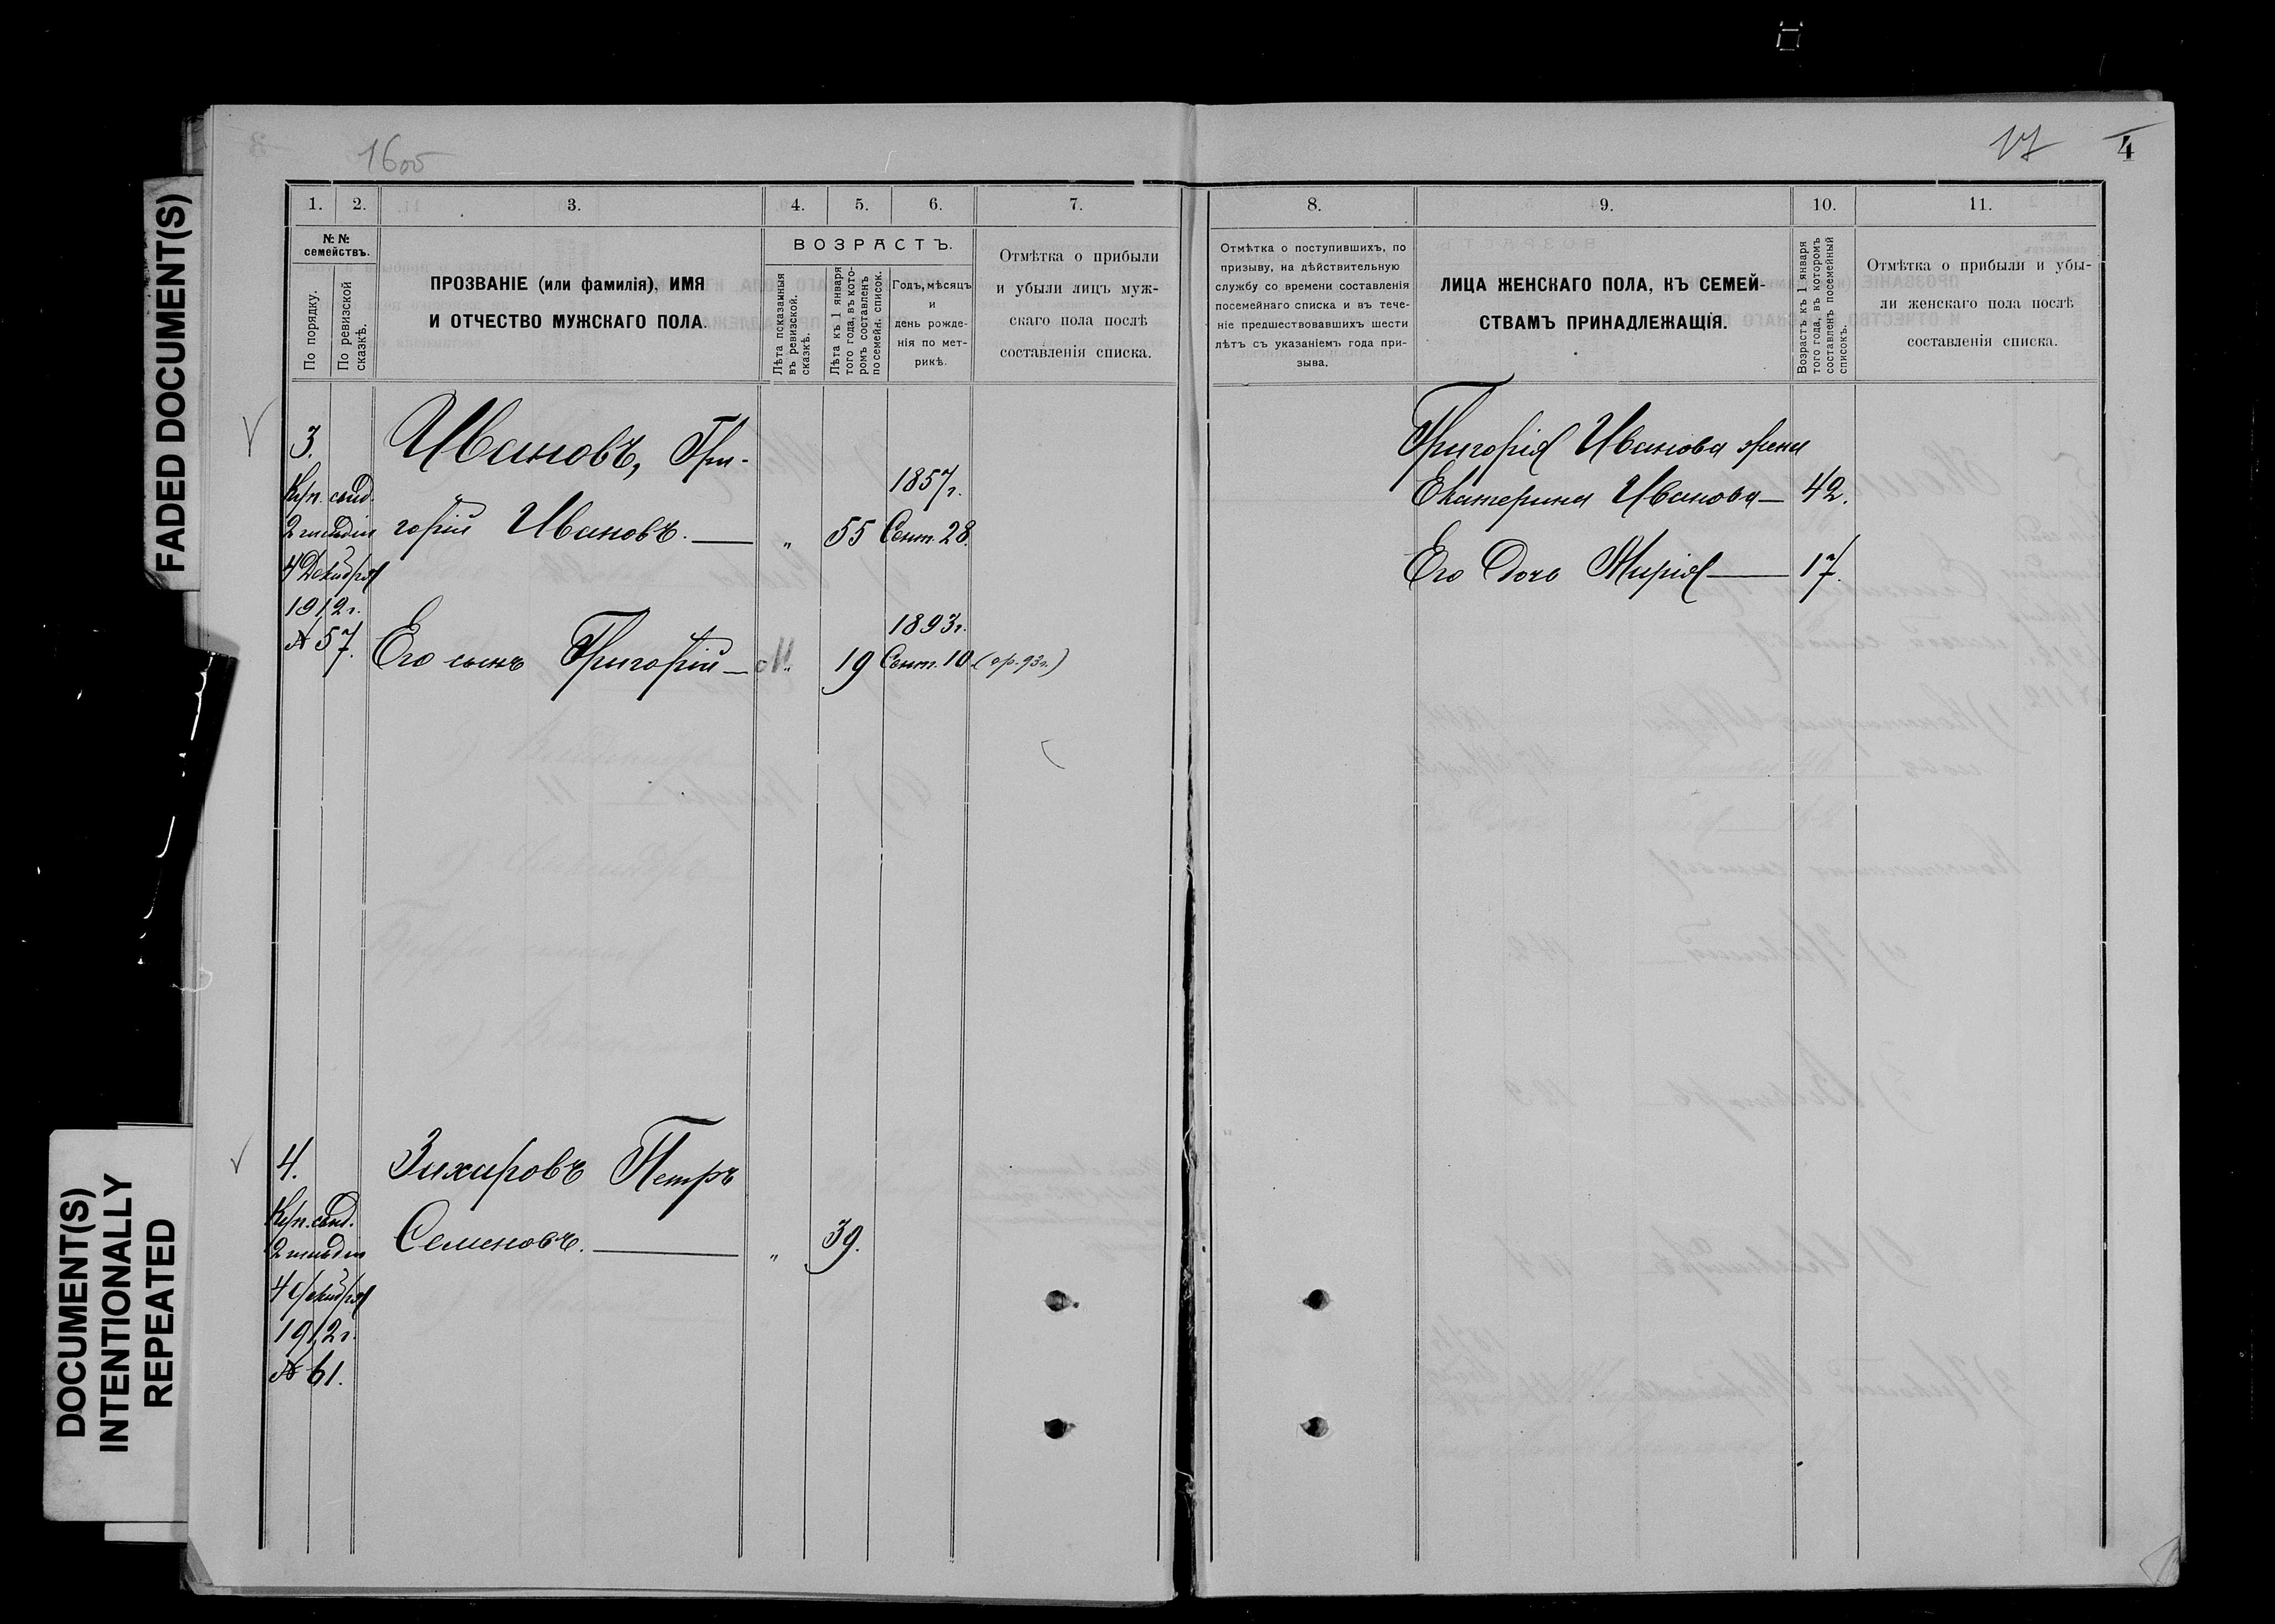 FADED DOCUMENT(S)
DOCUMENT(S)
INTENTIONALLY
REPEATED
16об
1. 2. 3. 4. 5. 6. 7.
№ №
семействъ.
По порядку.
По ревизской
сказкѣ.
ПРОЗВАНІЕ (или фамилія), ИМЯ
И ОТЧЕСТВО МУЖСКАГО ПОЛА.
ВОЗРАСТЪ.
Лѣта показанныя
въ ревизской.
сказкѣ.
Лѣта къ 1 января
того года, въ кото-
ромъ составленъ
посемейн. списокъ.
Годъ, мѣсяцъ
и
день рожде-
нія по мет-
рикѣ.
Отмѣтка о прибыли
и убыли лицъ муж-
скаго пола послѣ
составленія списка.
3.
Куп. свид.
2 гильдіи
4 Декабря
1912 г.
№ 57.
Ивановъ, Гри-
горій Ивановъ. — „ 55
1857 г.
Сент. 28.
Его сынъ Григорій — 19
1893 г.
Сент. 10
4.
Куп. свид.
2 гильдіи
4 Декабря
1912 г.
№ 61.
Захаровъ Петръ
Семеновъ. — „ 39.
17 4
8. 9. 10. 11.
Отмѣтка о поступившихъ, по
призыву, на дѣйствительную
службу со времени составленія
посемейнаго списка и въ тече-
ніе предшествовавшихъ шести
лѣтъ съ указаніемъ года при-
зыва.
ЛИЦА ЖЕНСКАГО ПОЛА, КЪ СЕМЕЙ-
СТВАМЪ ПРИНАДЛЕЖАЩІЯ.
Возрастъ къ 1 января
того года, въ которомъ
составленъ посемейный
списокъ.
Отмѣтка о прибыли и убы-
ли женскаго пола послѣ
составленія списка.
Григорія Иванова жена
Екатерина Иванова — 42.
Его дочь Марія — 17.